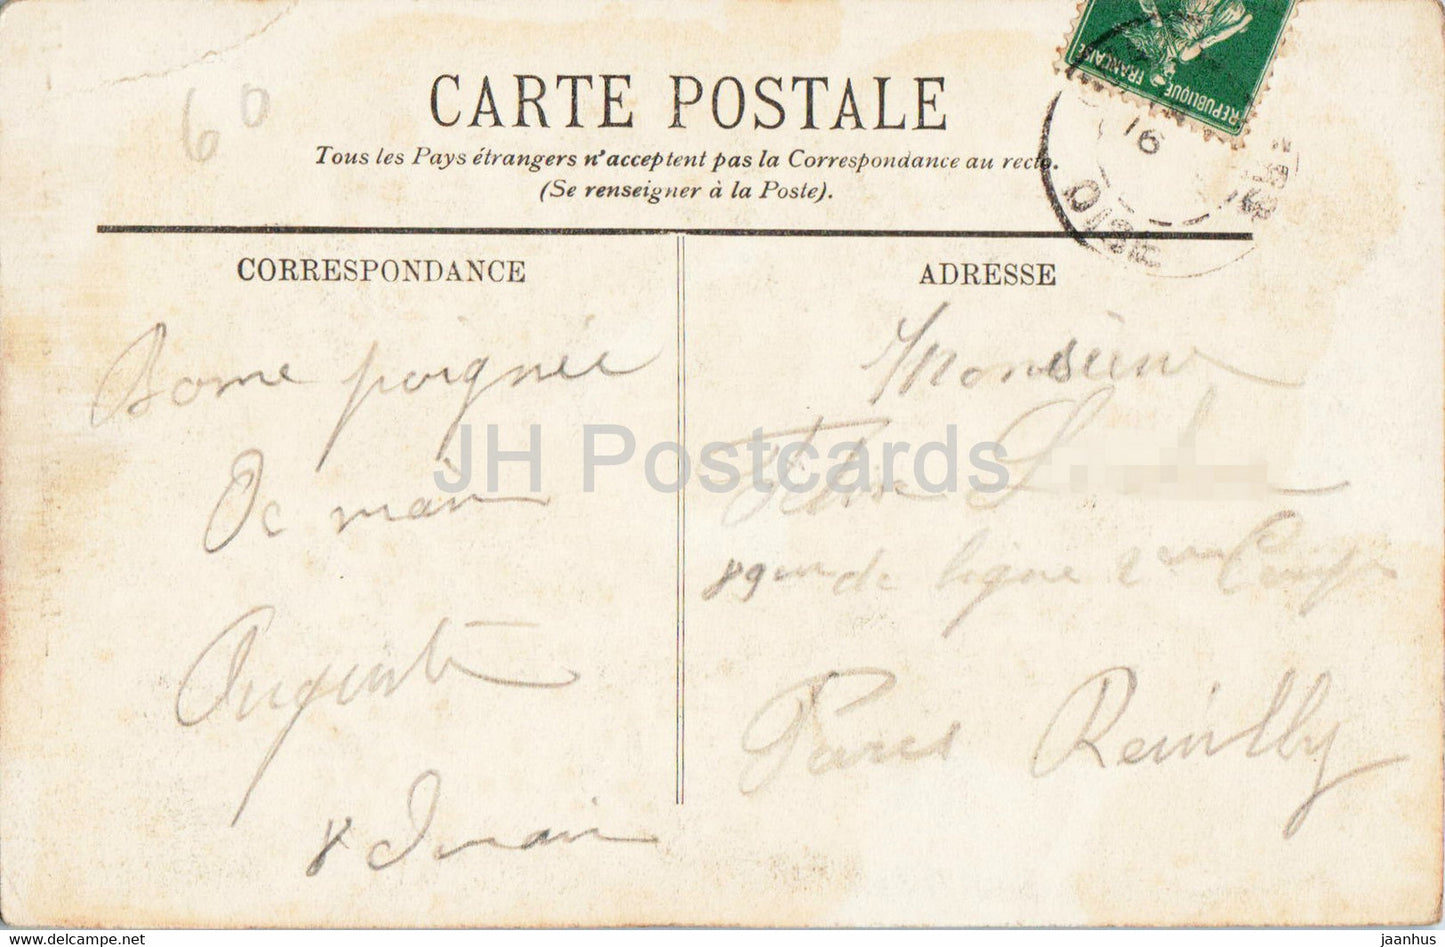 60
CARTE POSTALE
Tous les Pays étrangers n'acceptent pas la Correspondance au recto.
(Se renseigner à la Poste).
REPUBLIQUE FRANÇAISE
16
OISE
CORRESPONDANCE
Bonne poignée
De main
Auguste
ADRESSE
Monsieur
89em de ligne 2em Comp
Paris Reuilly
JH Postcards
www.delcampe.net
jaanhus